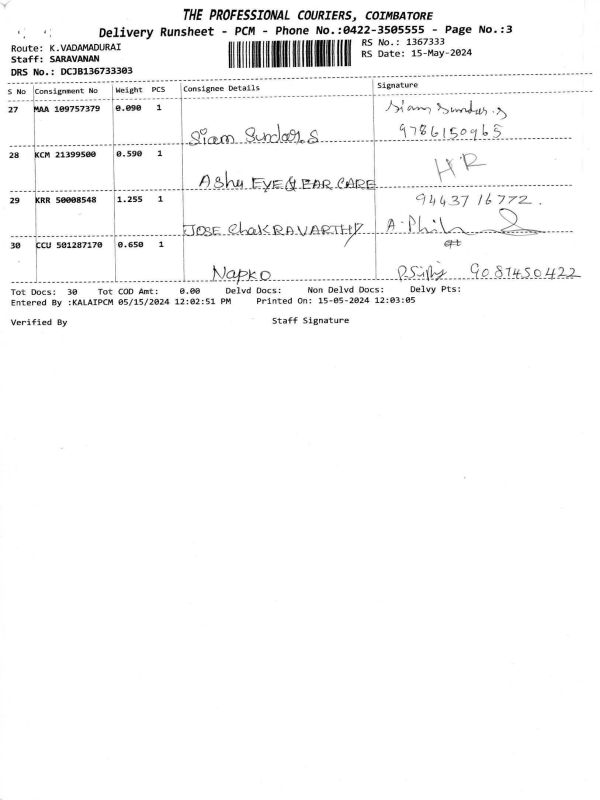 THE PROFESSIONAL COURIERS, COIMBATORE
Delivery Runsheet - PCM - Phone No.:0422-3505555 - Page No.:3
Route: K.VADAMADURAI
RS No.: 1367333
Staff: SARAVANAN
RS Date: 15-May-2024
DRS No.: DCJB136733303
S No Consignment No Weight PCS Consignee Details Signature
27 MAA 109757379 0.090 1 Siam Sundar.s
Siam Sundar.S 9786150965
28 KCM 21399500 0.590 1 HR
Ashu EYE & EAR CARE
29 KRR 50008548 1.255 1 9443716772.
JOSE ChaKRAVARTHY A. Phil
30 CCU 501287170 0.650 1
Napko 9087450422
Tot Docs: 30 Tot COD Amt: 0.00 Delvd Docs: Non Delvd Docs: Delvy Pts:
Entered By :KALAIPCM 05/15/2024 12:02:51 PM Printed On: 15-05-2024 12:03:05
Verified By Staff Signature